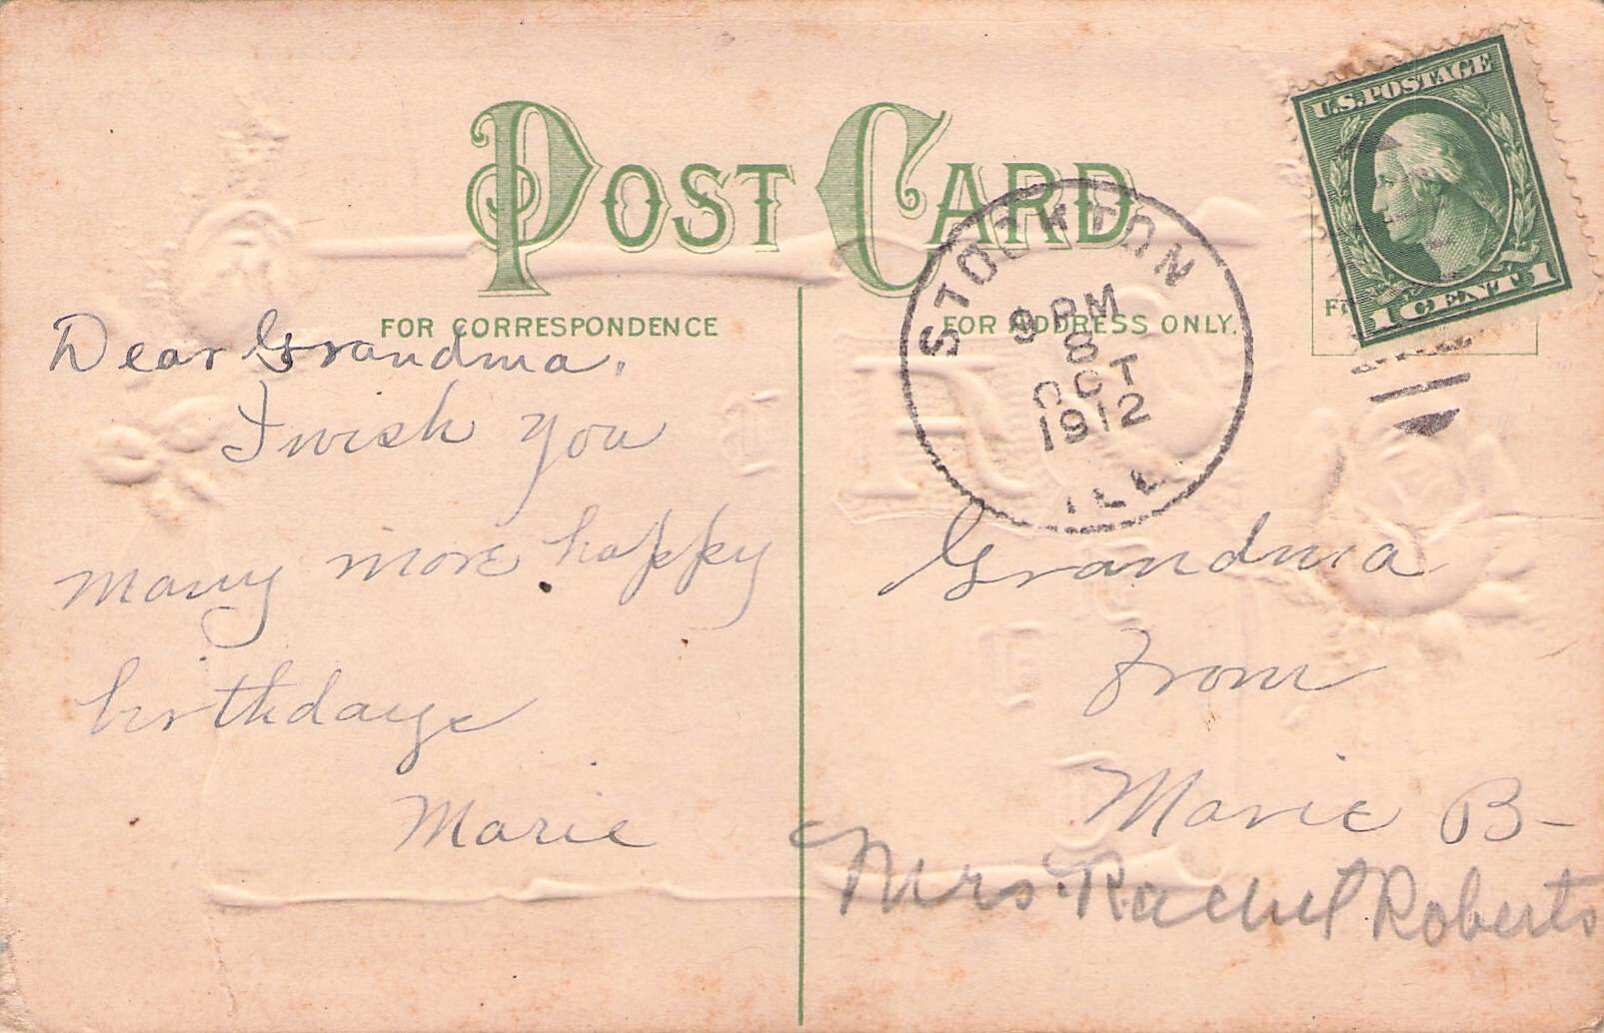 POST CARD
FOR CORRESPONDENCE
FOR ADDRESS ONLY.
U.S. POSTAGE
1 CENT 1
STOCKTON
9 PM
8
OCT
1912
ILL.
Dear Grandma,
I wish you
many more happy
birthdays
Marie
Grandma
From
Marie B-
Mrs. Rachel Roberts